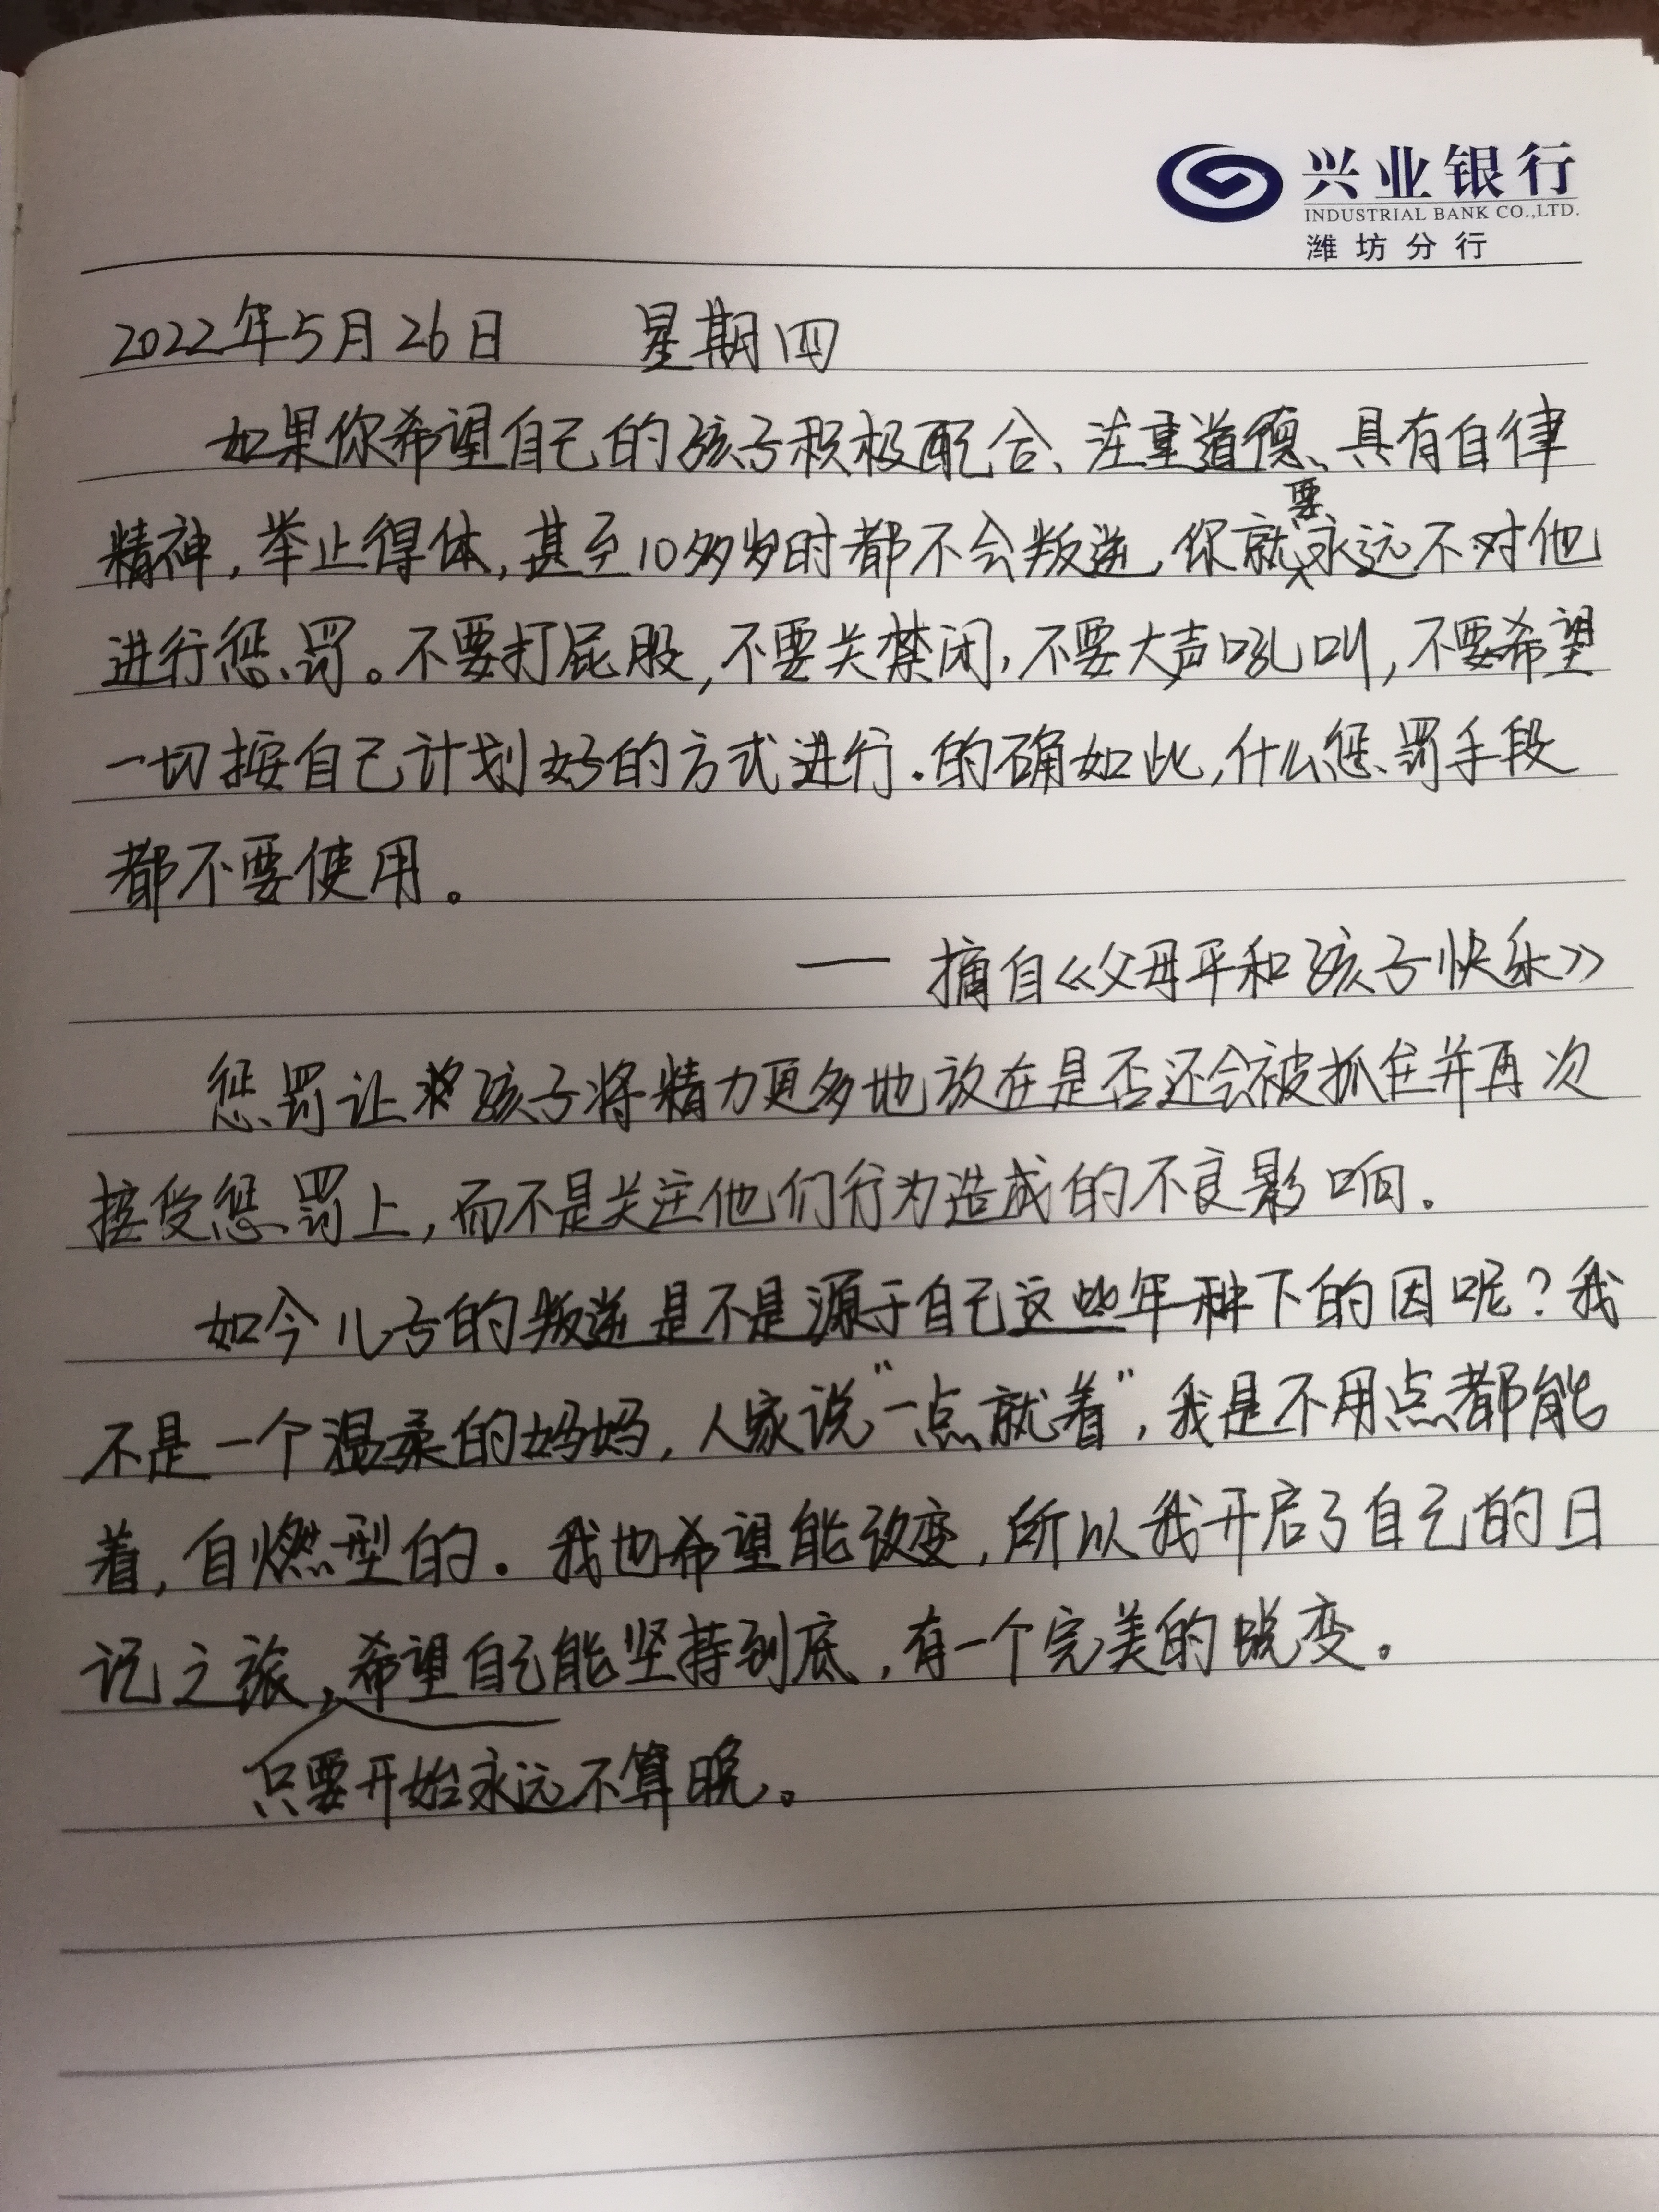 兴业银行
INDUSTRIAL BANK CO.,LTD.
潍坊分行
2022年5月26日 星期四
如果你希望自己的孩子积极配合、注重道德、具有自律
精神,举止得体,甚至10多岁时都不会叛逆,你就要永远不对他
进行惩罚。不要打屁股,不要关禁闭,不要大声吼叫,不要希望
一切按自己计划好的方式进行.的确如此,什么惩罚手段
都不要使用。
——摘自《父母平和孩子快乐》
惩罚让孩子将精力更多地放在是否还会被抓住并再次
接受惩罚上,而不是关注他们行为造成的不良影响.
如今儿子的叛逆是不是源于自己这些年种下的因呢?我
不是一个温柔的妈妈,人家说"一点就着",我是不用点都能
着,自燃型的.我也希望能改变,所以我开启了自己的日
记之旅,希望自己能坚持到底,有一个完美的蜕变.
只要开始永远不算晚。